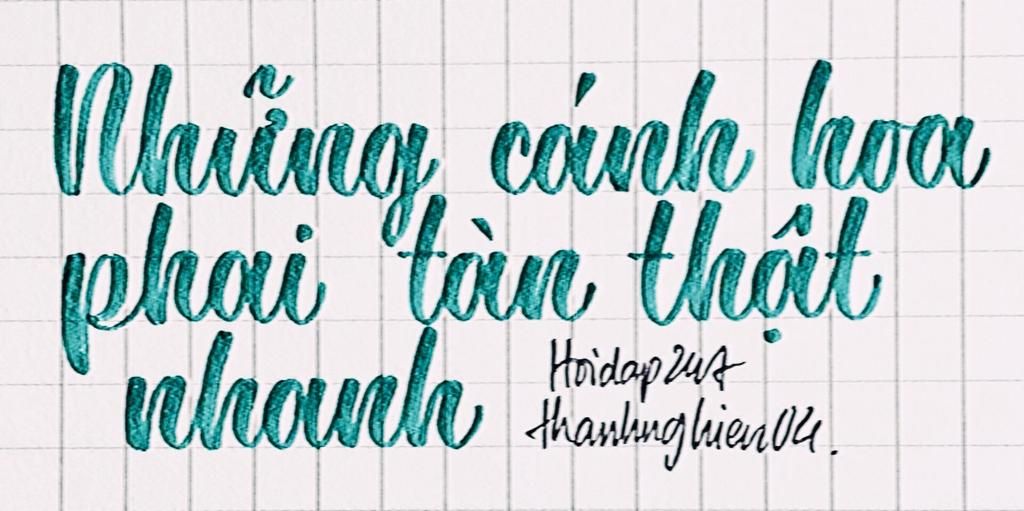 Những cánh hoa
phai tàn thật
nhanh
Hoidap247
thanhnghien04.